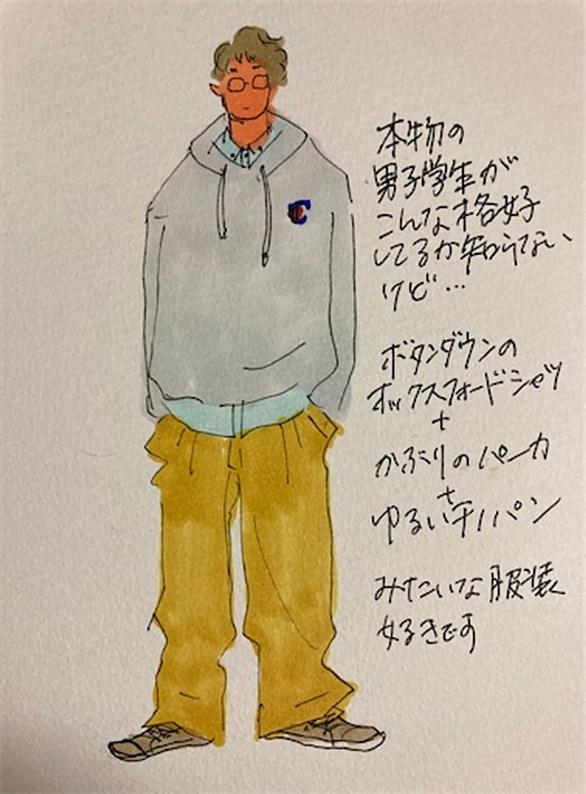 本物の
男子学生が
こんな格好
してるか知らない
けど…
ボタンダウンの
オックスフォードシャツ
+
かぶりのパーカ
+
ゆるいチノパン
みたいな服装
好きです
C